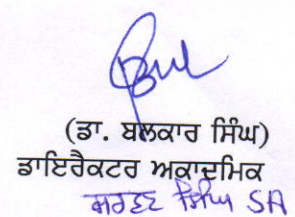 (ਡਾ. ਬਲਕਾਰ ਸਿੰਘ)
ਡਾਇਰੈਕਟਰ ਅਕਾਦਮਿਕ
ਸਿੰਘ SA